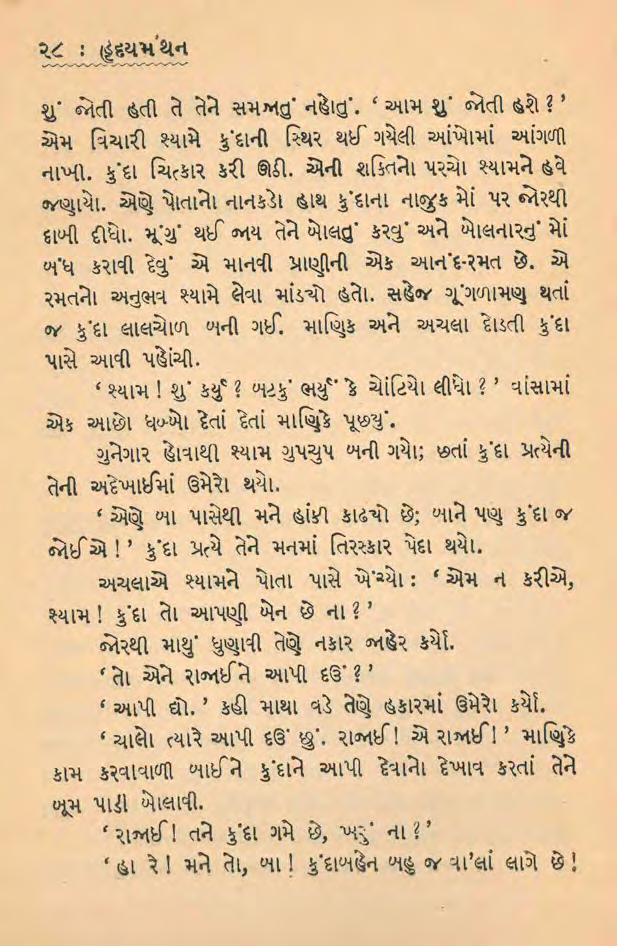 ૨૮ : હૃદયમંથન
શું જોતી હતી તે તેને સમજાતું નહોતું. ‘ આમ શું જોતી હશે ? ’
એમ વિચારી શ્યામે કુંદાની સ્થિર થઈ ગયેલી આંખોમાં આંગળી
નાખી. કુંદા ચિત્કાર કરી ઊઠી. એની શક્તિનો પરચો શ્યામને હવે
જણાયો. એણે પોતાનો નાનકડો હાથ કુંદાના નાજુક મોં પર જોરથી
દાબી દીધો. મૂંગું થઈ જાય તેને બોલતું કરવું અને બોલનારનું મોં
બંધ કરાવી દેવું એ માનવી પ્રાણીની એક આનંદ-રમત છે. એ
રમતનો અનુભવ શ્યામે લેવા માંડ્યો હતો. સહેજ ગૂંગળામણ થતાં
જ કુંદા લાલચોળ બની ગઈ. માણિક અને અચલા દોડતી કુંદા
પાસે આવી પહોંચી.
‘ શ્યામ ! શું કર્યું ? બટકું ભર્યું કે ચોંટિયો લીધો ? ’ વાંસામાં
એક આછો ધબ્બો દેતાં દેતાં માણિકે પૂછ્યું.
ગુનેગાર હોવાથી શ્યામ ગુપચુપ બની ગયો; છતાં કુંદા પ્રત્યેની
તેની અદેખાઈમાં ઉમેરો થયો.
‘ એણે બા પાસેથી મને હાંકી કાઢ્યો છે; બાને પણ કુંદા જ
જોઈએ ! ’ કુંદા પ્રત્યે તેને મનમાં તિરસ્કાર પેદા થયો.
અચલાએ શ્યામને પોતા પાસે ખેંચ્યો : ‘ એમ ન કરીએ,
શ્યામ ! કુંદા તો આપણી બેન છે ના ? ’
જોરથી માથું ધુણાવી તેણે નકાર જાહેર કર્યો.
‘ તો એને રાજાઈને આપી દઉં ? ’
‘ આપી દ્યો. ’ કહી માથા વડે તેણે હકારમાં ઉમેરો કર્યો.
‘ ચાલો ત્યારે આપી દઉં છું. રાજાઈ ! એ રાજાઈ ! ’ માણિકે
કામ કરવાવાળી બાઈને કુંદાને આપી દેવાનો દેખાવ કરતાં તેને
બૂમ પાડી બોલાવી.
‘ રાજાઈ ! તને કુંદા ગમે છે, ખરું ના ? ’
‘ હા રે ! મને તો, બા ! કુંદાબહેન બહુ જ વા’લાં લાગે છે !